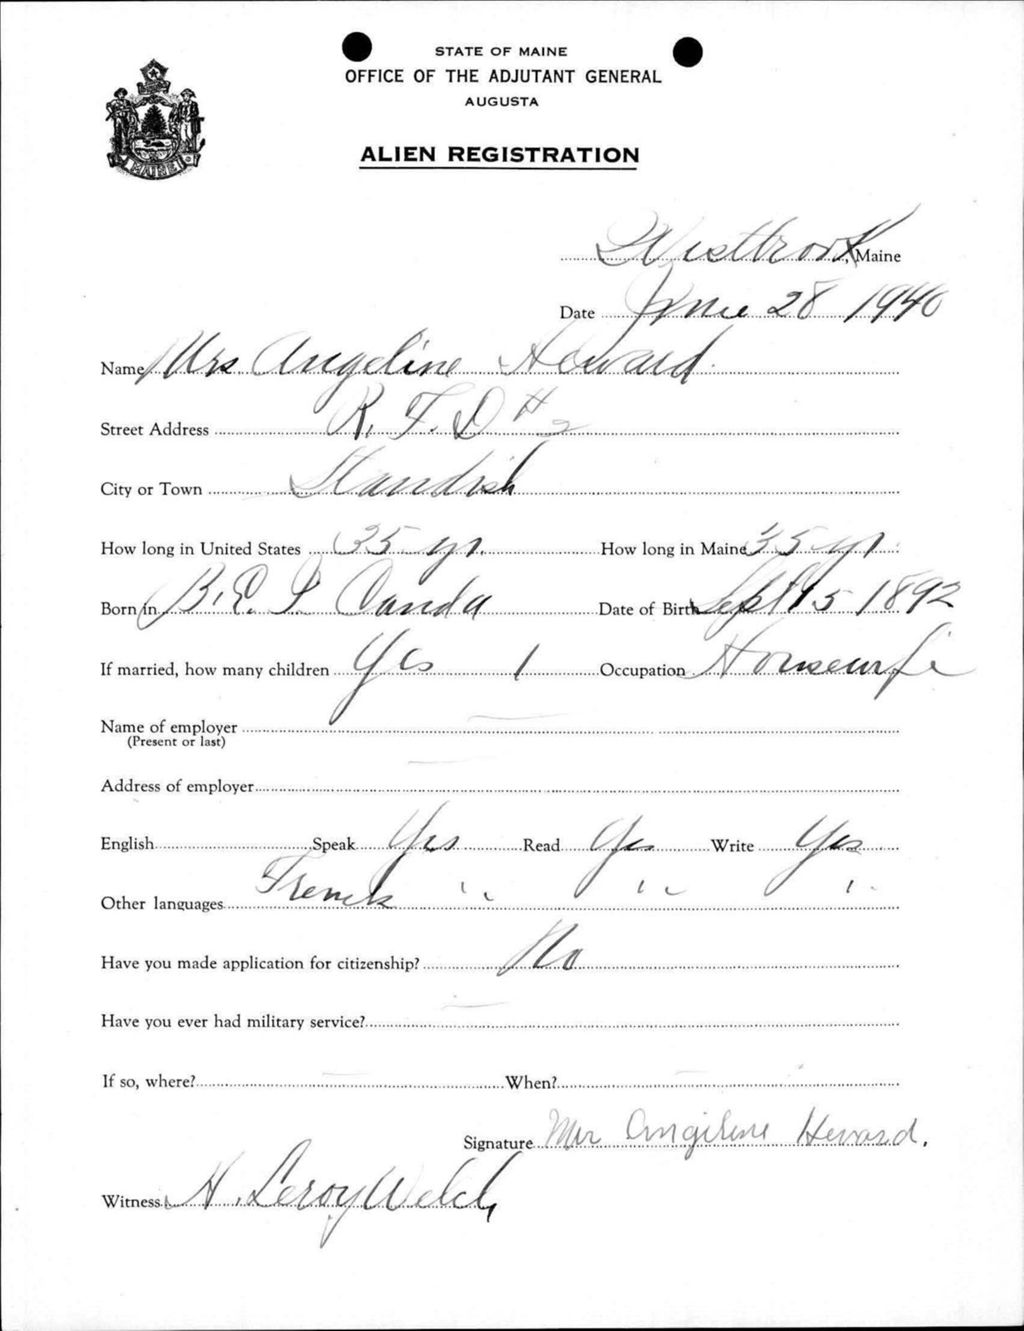 STATE OF MAINE
OFFICE OF THE ADJUTANT GENERAL
AUGUSTA
ALIEN REGISTRATION
MAINE
Westbrook, Maine
Date June 28 1940
Name Mrs Angeline Howard
Street Address R. F. D # 2
City or Town Standish
How long in United States 35 yr. How long in Maine 35 yr
Born in P. E. I. Canda Date of Birth Sept 15 1892
If married, how many children Yes 1 Occupation Housewife
Name of employer —
(Present or last)
Address of employer —
English Speak Yes Read Yes Write Yes
Other languages French " " "
Have you made application for citizenship? No
Have you ever had military service? —
If so, where? — When? —
Signature Mrs Angeline Howard.
Witness H. Leroy Welch